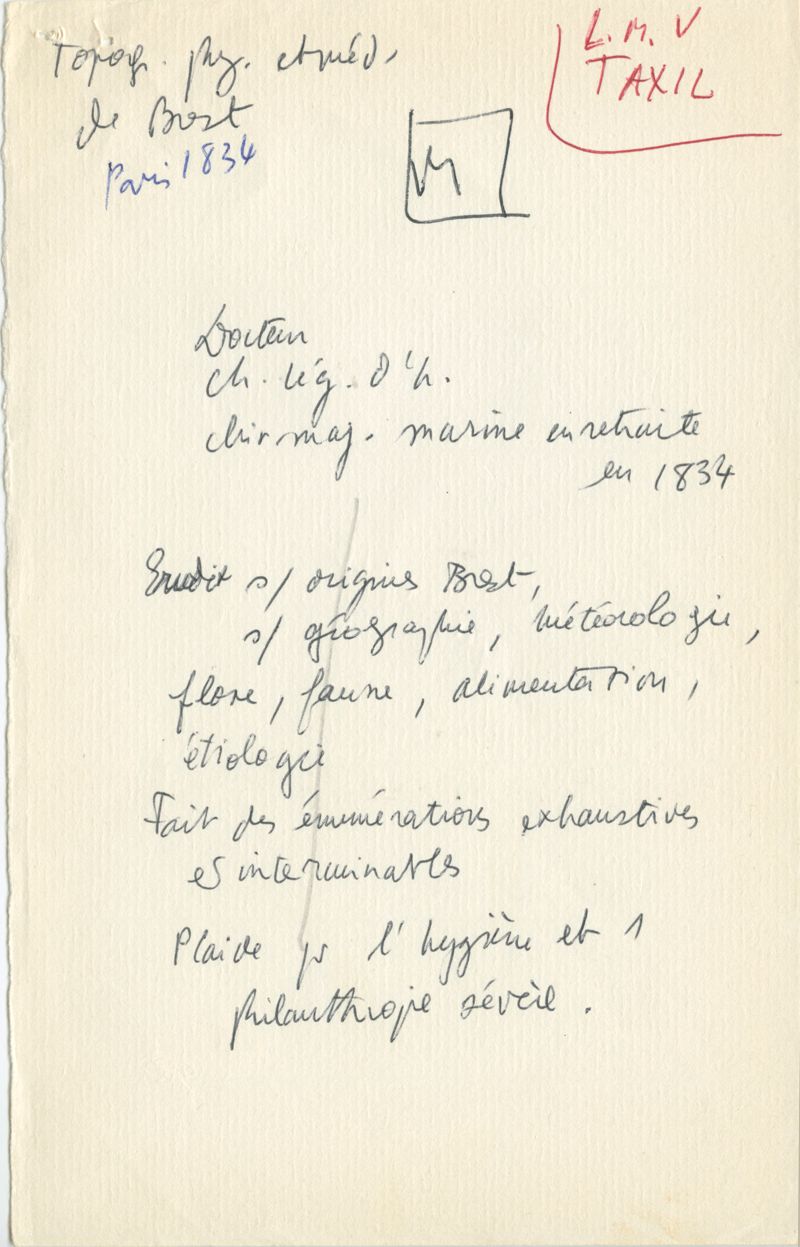 Topogr. phy. et méd.
de Brest
Paris 1834
L. M. V
TAXIL
M
Docteur
ch. lég. d'h.
chir. maj. marine en retraite
en 1834
Erudit s/ origines Brest,
s/ géographie, météorologie,
flore, faune, alimentation,
étiologie
Fait des énumérations exhaustives
et interminables
Plaide pr l'hygiène et 1
philanthropie sévère.